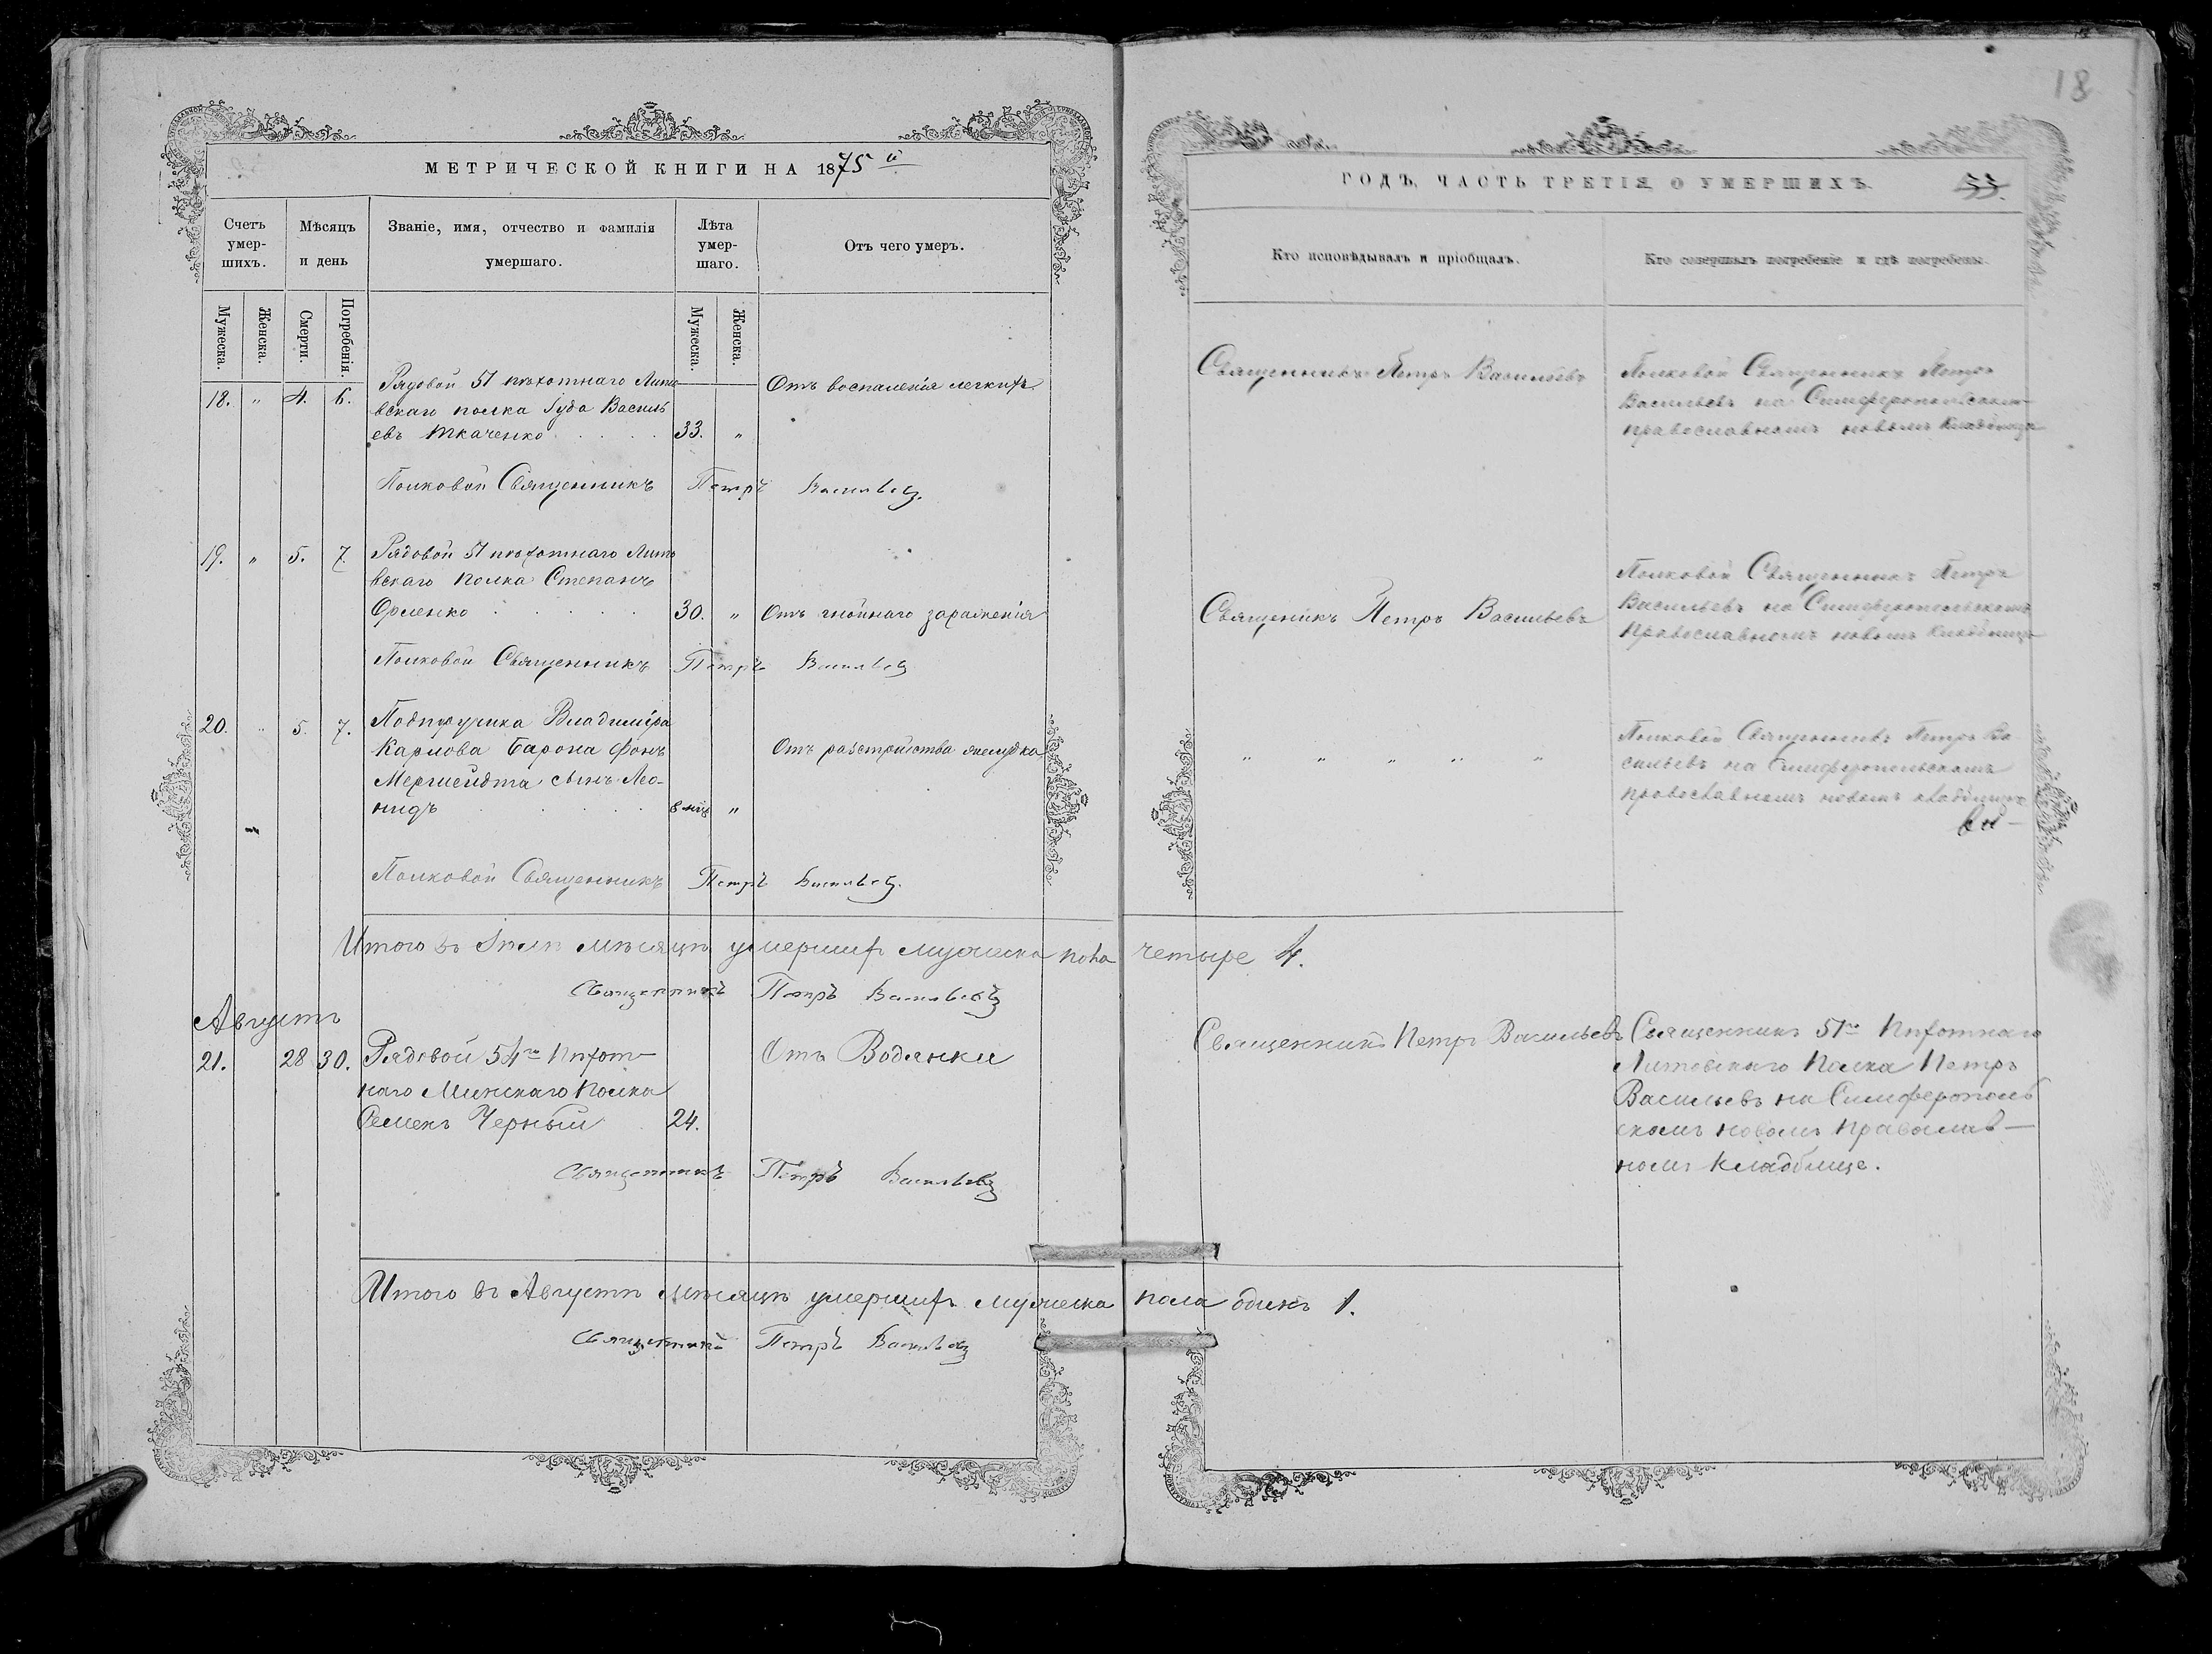 18
МЕТРИЧЕСКОЙ КНИГИ НА 1875 й
ГОДЪ, ЧАСТЬ ТРЕТІЯ, О УМЕРШИХЪ.
33.
Счетъ умер- шихъ.
Мѣсяцъ и день
Званіе, имя, отчество и фамилія умершаго.
Лѣта умер- шаго.
Отъ чего умеръ.
Кто исповѣдывалъ и пріобщалъ.
Кто совершалъ погребеніе и гдѣ погребены.
Мужеска. Женска. Смерти. Погребенія. Мужеска. Женска.
18. " 4. 6. Рядовой 51 пѣхотнаго Лито
вскаго полка Іуда Василь
евъ Ткаченко 33. "
Отъ воспаленія легкихъ
Священникъ Петръ Васильевъ
Полковой Священникъ Петръ
Васильевъ на Симферопольскомъ
православномъ новомъ кладбищѣ
Полковой Священникъ Петръ Васильевъ.
19. " 5. 7. Рядовой 51 пѣхотнаго Лито
вскаго полка Степанъ
Орленко 30. " Отъ гнойнаго зараженія
Священикъ Петръ Васильевъ
Полковой Священникъ Петръ
Васильевъ на Симферопольскомъ
Православномъ новомъ кладбищѣ
Полковой Священникъ Петръ Васильевъ
20. " 5. 7. Подпоручика Владиміра
Карлова Барона фонъ
сынъ Лео-
нидъ 8 мцъ "
Отъ разстройства желудка
" " " " "
Полковой Священникъ Петръ Ва
сильевъ на Симферопольскомъ
православномъ новомъ кладбищѣ
Полковой Священникъ Петръ Васильевъ.
Итого въ Іюлѣ мѣсяцѣ умершихъ мужеска пола четыре 4.
Священникъ Петръ Васильевъ
Августъ
21. 28 30. Рядовой 54го Пѣхот-
наго Минскаго Полка
Семенъ Черный 24.
Отъ Водянки
Священникъ Петръ Васильевъ
Священникъ 51го Пѣхотнаго
Литовскаго Полка Петръ
Васильевъ на Симферополь
скомъ новомъ православ-
номъ кладбище.
Священникъ Петръ Васильевъ
Итого въ Августѣ мѣсяцѣ умершихъ мужеска пола одинъ 1.
Священникъ Петръ Васильевъ